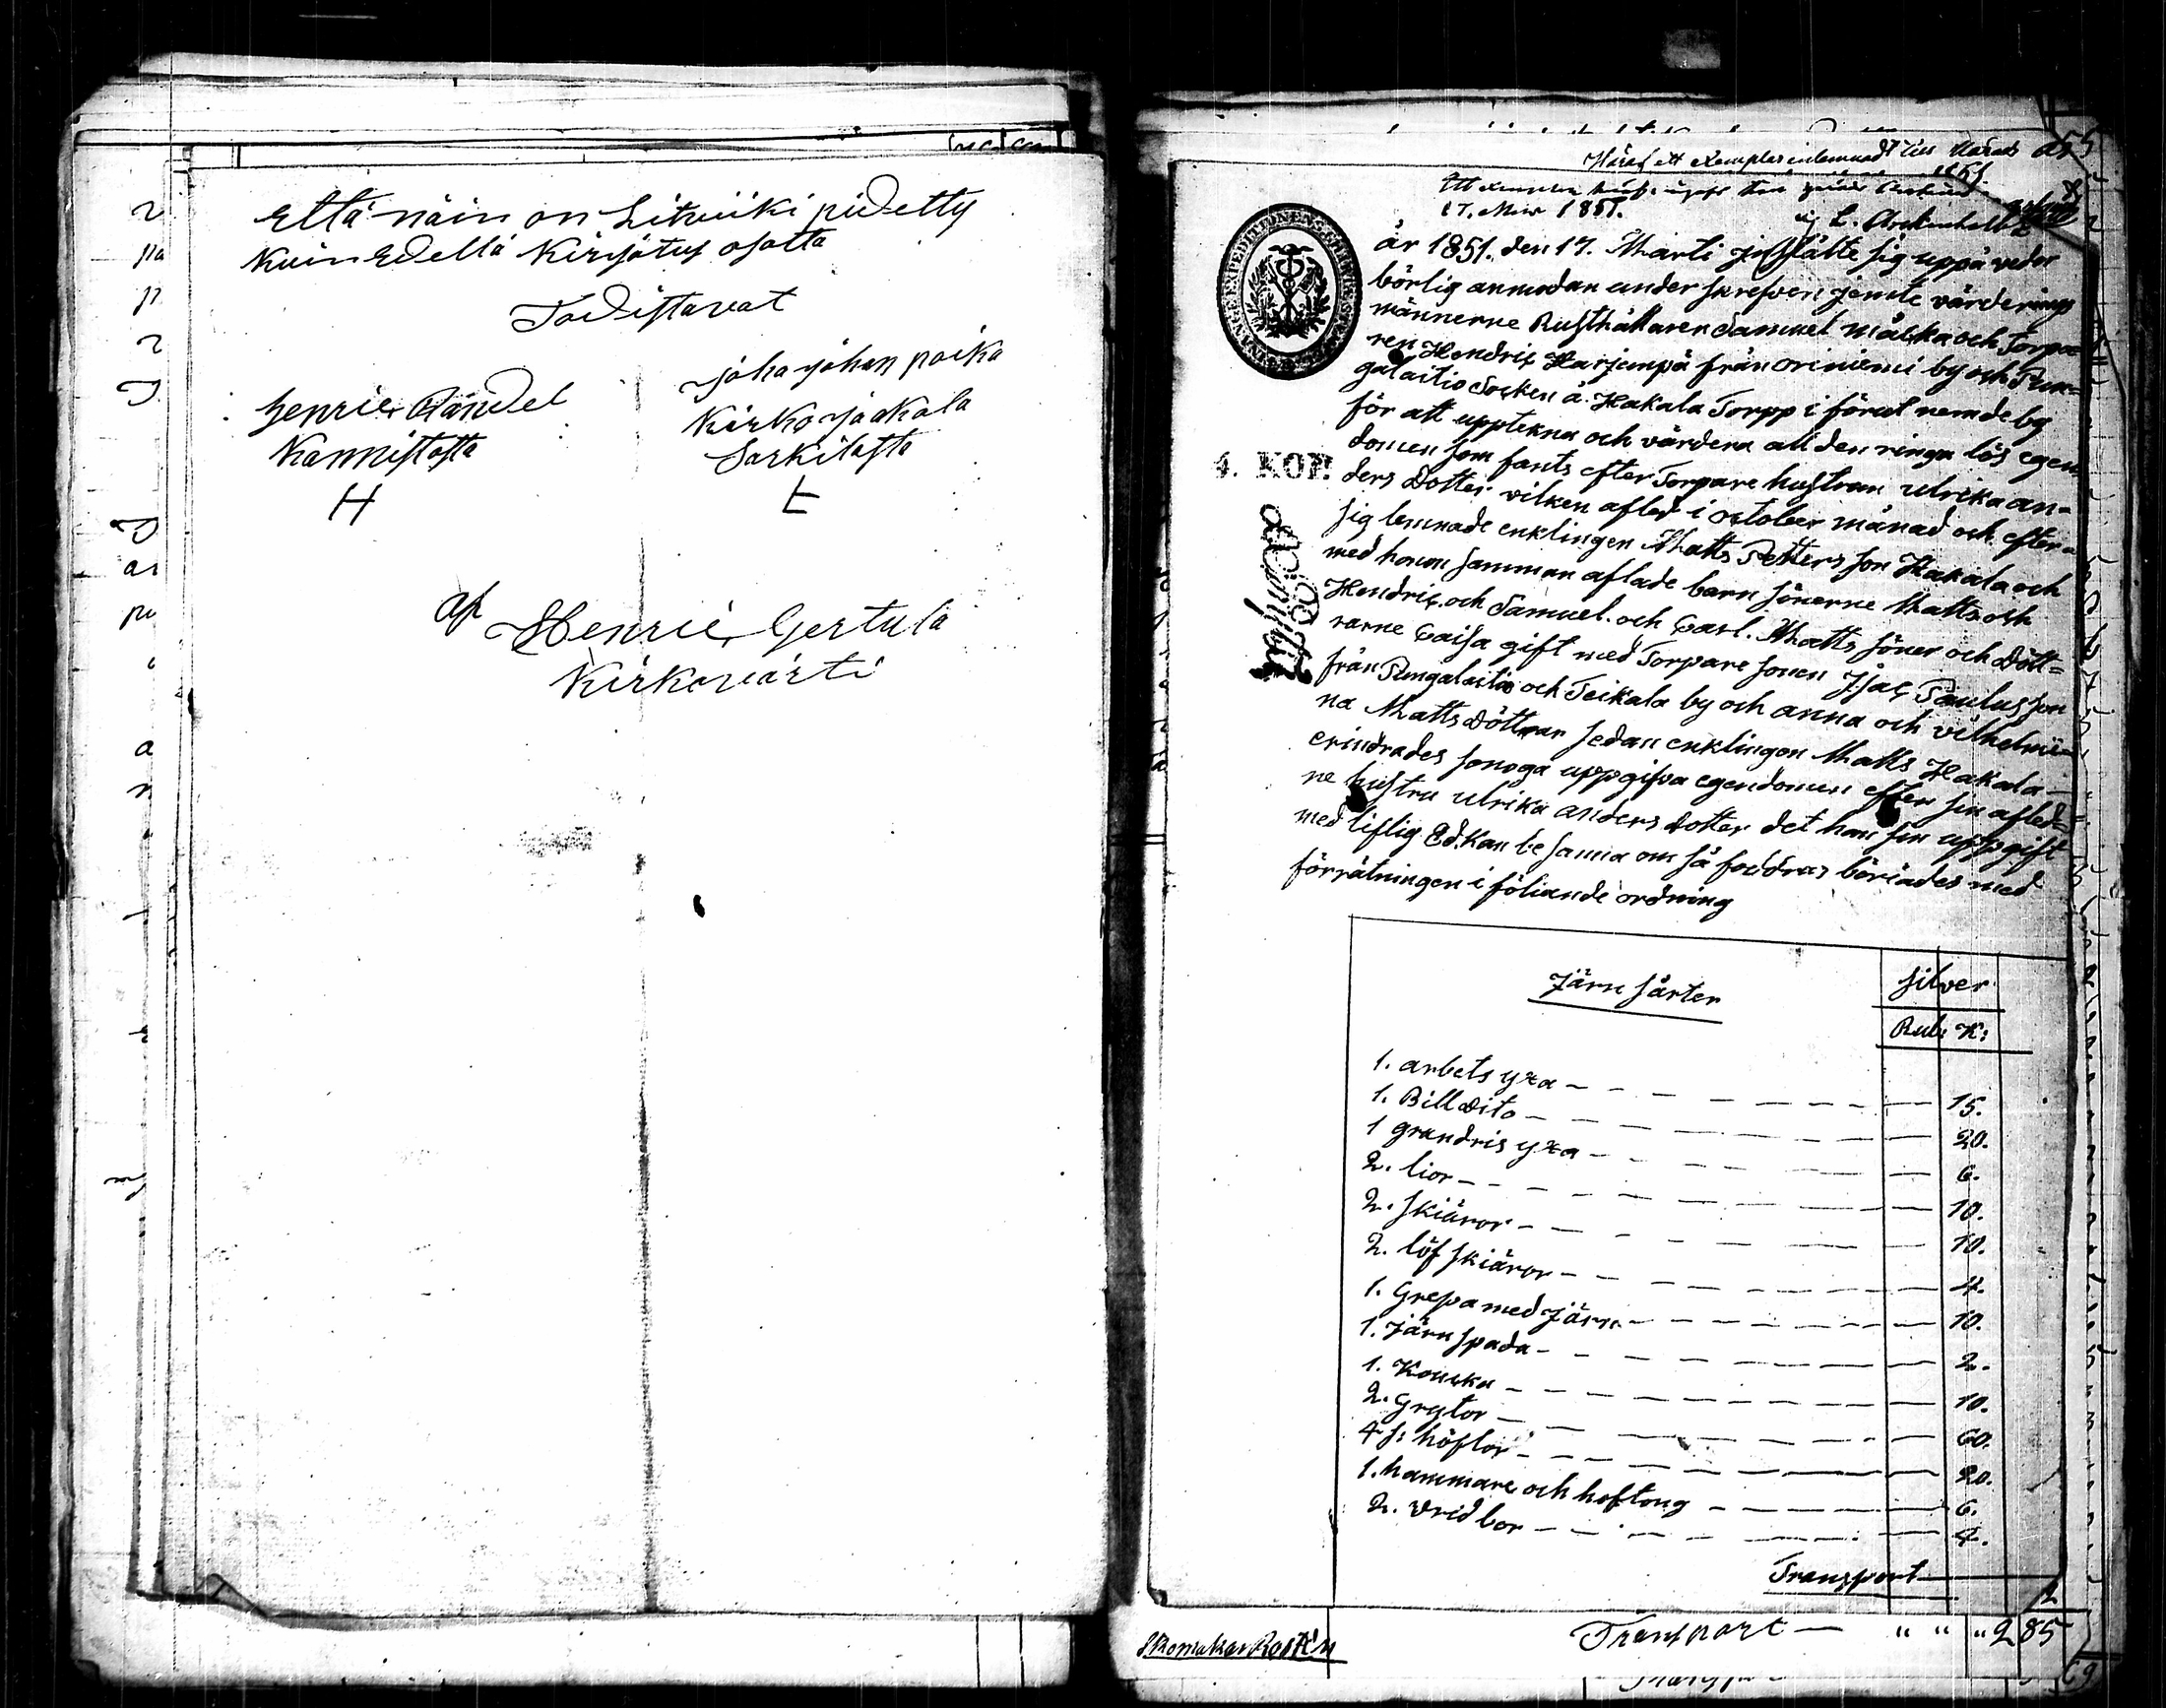 Että näin on Litviiki pidetty
Kuin Edellä Kirjötus osotta
Todistavat
Henric Rändel
Kannistosta
H
joha johan poika
Kirko jaakala
Sarkilasta
af
Henric Gertula
Kirkovärti
Häraf ett Exemplar inlemnadt till Härads
17. Mars 1851.
4. KOP.
år 1851. den 17. Marti instälte sig uppå veder
börlig anmodan under skrefven jemte värderings
männerne Rusthållaren Samuel Mälkä och Torpa=
ren Hendric Harjunpä från oriniemi by och Pun=
galaitio Socken å Hakala Torpp i förut nemde by
för att upptekna och värdera all den ringa lös egen
domen som fants efter Torpare hustrun Ulrika an=
ders Dotter vilken afled i october månad och efter=
sig lemnade enklingen Matts Petters son Hakala och
med honom samman aflade barn sönerne Matts och
Hendric och Samuel och Carl. Matts söner och Dött=
rarne Caisa gift med Torpare sonen Isac Paulus son
från Pungalaitio och Teikala by och anna och vilhelmi=
na Matts Döttrar sedan enklingen Matts Hakala
erindrades sonoga uppgifva egendomen efter sin afled=
ne hustru Ulrika anders dotter det han sin uppgift
med liflig Ed. Kan be sanna om så fordras börjades med
förrätningen i följande ordning
Järn sårter
silver
Rub: K:
1. arbets yxa 15.
1. Bill dito 20.
1 grandris yxa 6.
2. lior 10.
2. skiäror 10.
2. löf skiäror 4.
1. Grepa med Järn 10.
1. Järn spada 2.
1. Koucka 10.
2. Grytor 60.
4 s: höflor 20.
1. hammare och hoftong 6.
2. vrid bor 4.
Transport
Skomakar Rostén
Transport " " " 2 85